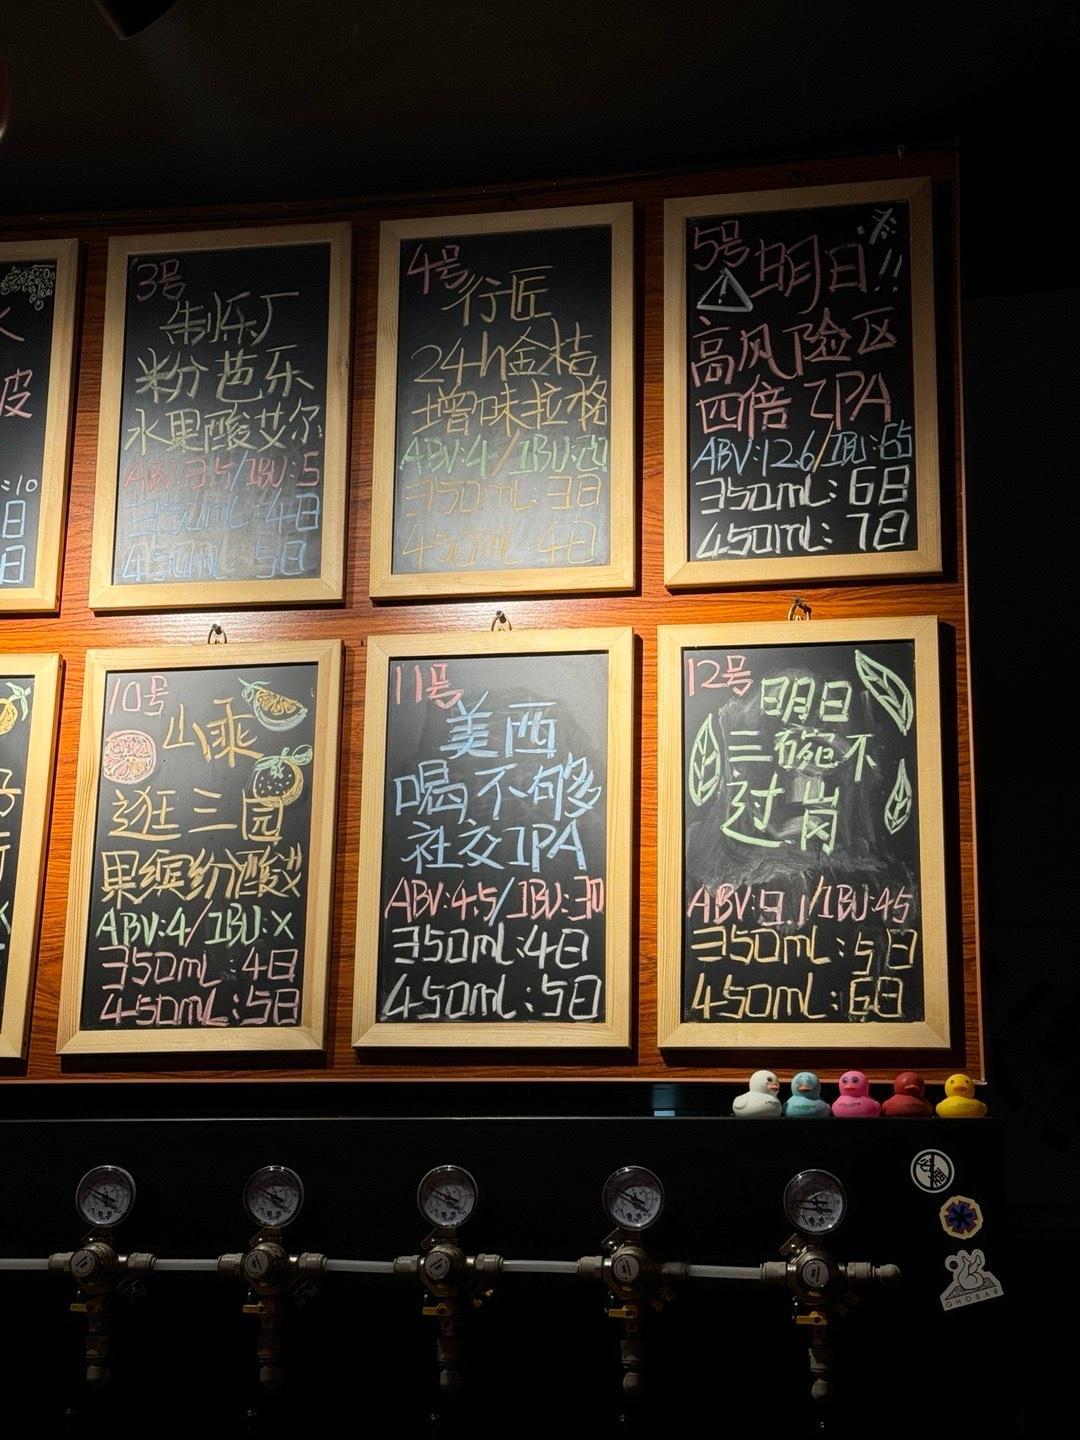 皮
:10
日
日
3号
制乐厂
粉芭乐
水果酸艾尔
ABV:3.5/IBU:5
350mL:4日
450mL:5日
4号
行匠
24h金桔
增味拉格
ABV:4/IBU:20
350mL:3日
450mL:4日
5号
明日!!
高风险区
四倍IPA
ABV:12.6/IBU:65
350mL:6日
450mL:7日
10号
山乘
逛三园
果缤纷酸
ABV:4/IBU:X
350mL:4日
450mL:5日
11号
美西
喝不够
社交IPA
ABV:4.5/IBU:30
350mL:4日
450mL:5日
12号
明日
三碗不
过岗
ABV:9.1/IBU:45
350mL:5日
450mL:6日
GHOBAR